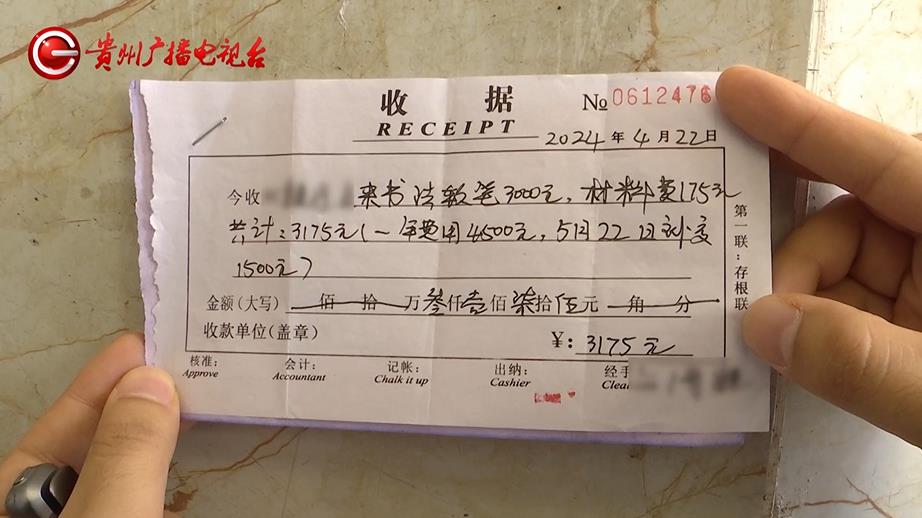 贵州广播电视台
收 据
RECEIPT
№ 0612476
2024 年 4 月 22 日
今收 来书法软笔3000元,材料费175元
共计:3175元(一年费用4500元,5月22日补交
1500元)
金额(大写) 佰 拾 万 叁 仟 壹 佰 柒 拾 伍 元 角 分
收款单位(盖章) ¥: 3175元
核准: 会计: 记帐: 出纳: 经手
Approve Accountant Chalk it up Cashier Clea
第一联:存根联